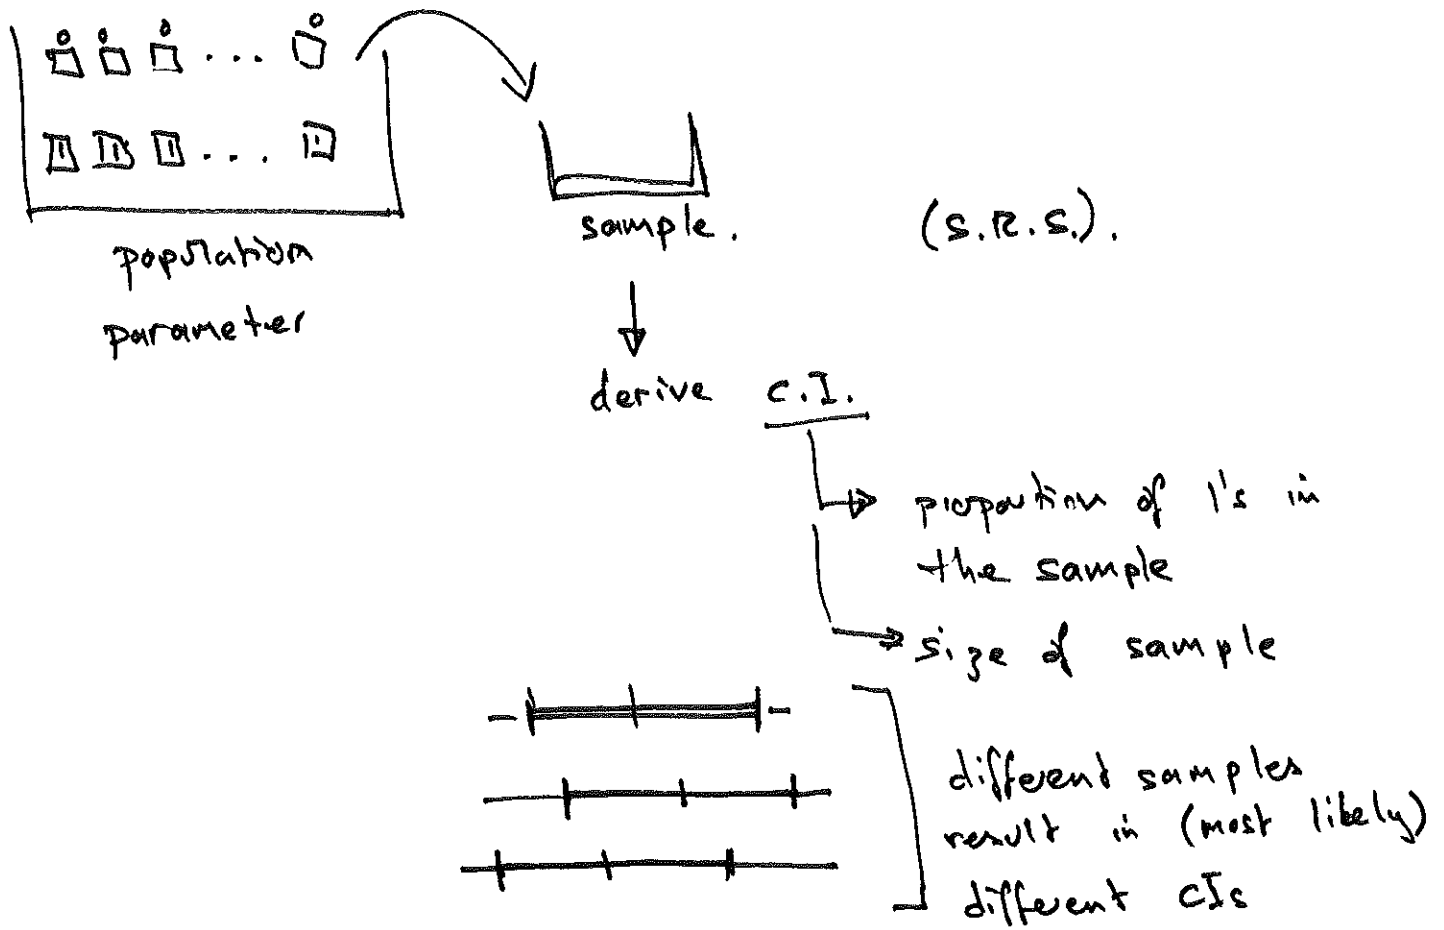 0 0 0 . . . 0
1 1 1 . . . . 1
population
parameter
sample.
(S.R.S.).
derive C.I.
proportion of 1's in
the sample
size of sample
different samples
result in (most likely)
different CIs